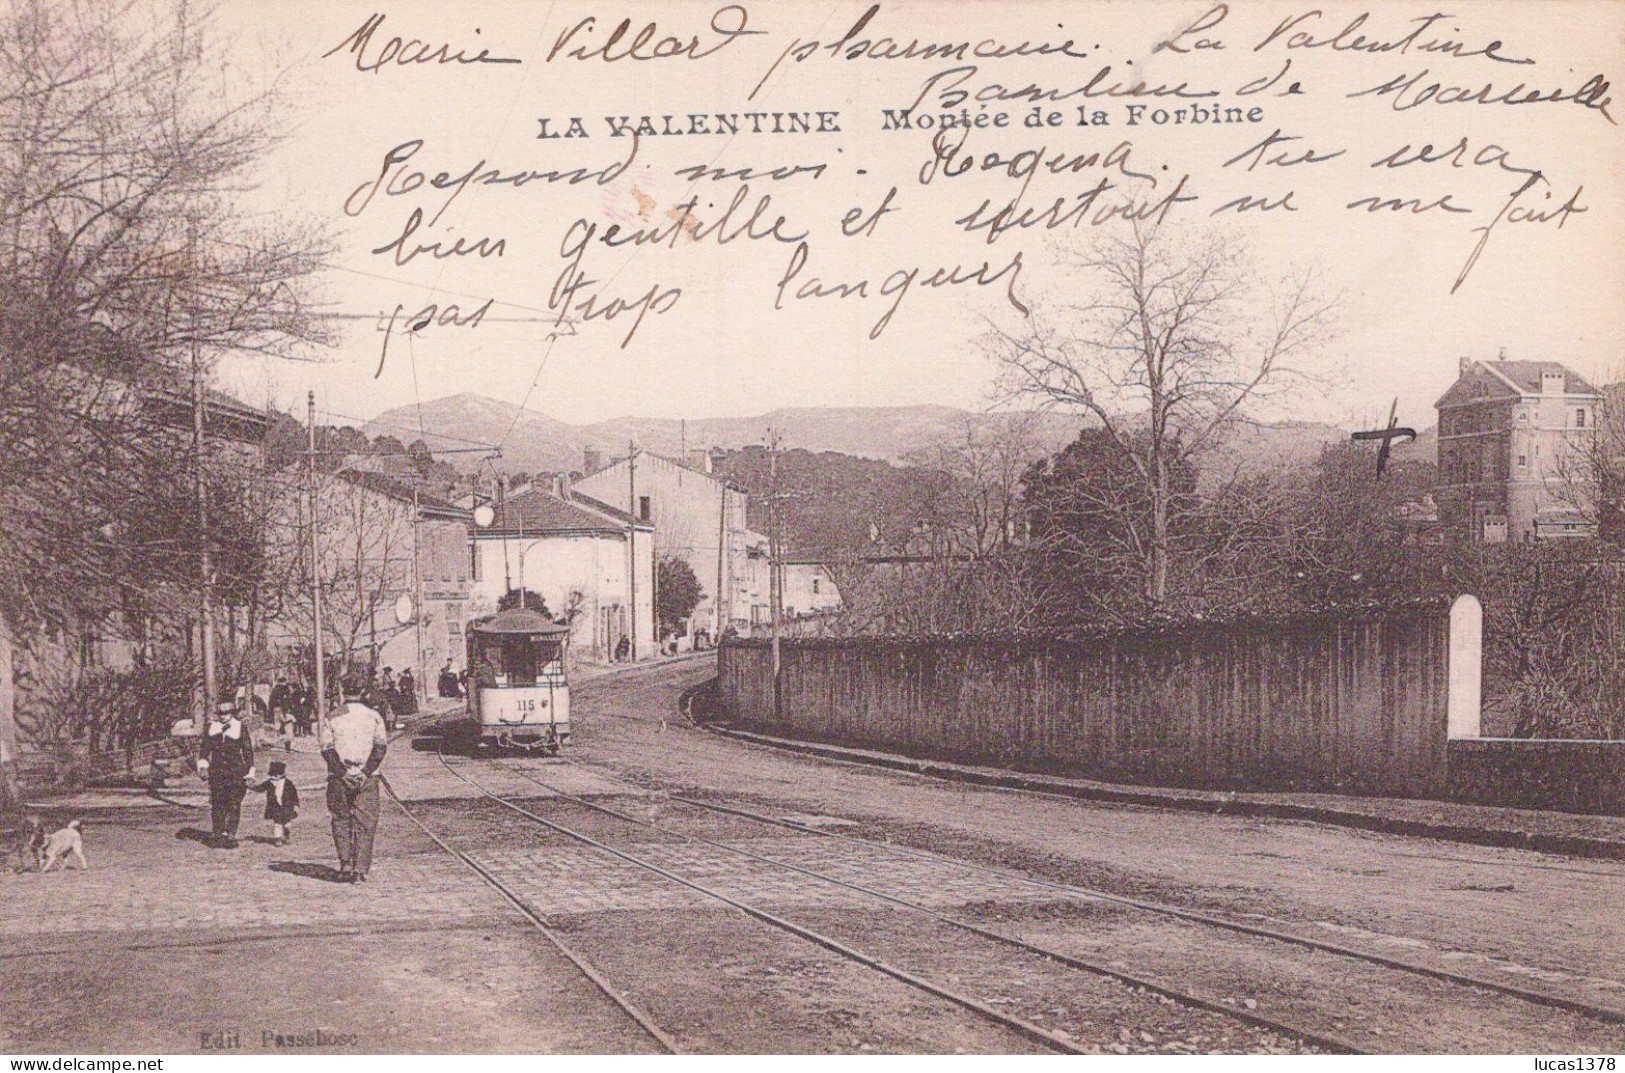 Marie Villard pharmacie. La Valentine
Banlieu de Marseille
LA VALENTINE Montée de la Forbine
Repond moi. Regina. tu sera
bien gentille et surtout ne me fait
pas trop languir
115
Edit. Passebosc
lucas1378